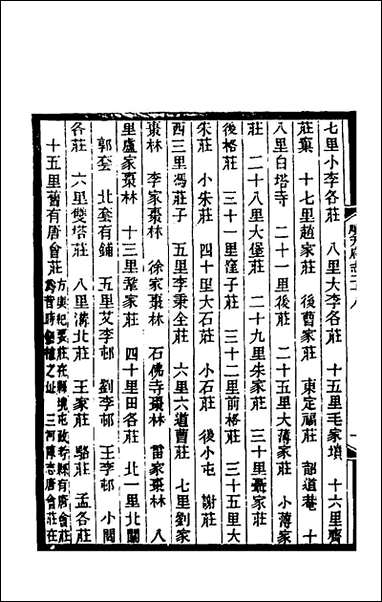 七里小李各莊　八里大李各莊　十五里毛家墳　十六里齊
莊窠　十七里趙家莊　後曹家莊　東定福莊　韶道巷　十
八里白塔寺　二十一里後莊　二十五里大薄家莊　小薄家
莊　二十八里大堡莊　二十九里朱家莊　三十里聶家莊
後格莊　三十一里窪子莊　三十二里前格莊　三十五里大
朱莊　小朱莊　四十里大石莊　小石莊　後小屯　謝莊
西三里馮莊子　五里李秉全莊　六里六道曹莊　七里劉家
棗林　李家棗林　徐家棗林　石佛寺棗林　雷家棗林　八
里盧家棗林　十三里龔家莊　四十里田各莊　北一里北關
郭套　北套有鋪　五里艾李邨　劉李邨　王李邨　小閻
各莊　六里雙塔莊　八里溝北莊　王家莊　駱莊　孟各莊
十五里舊有唐會莊
方輿紀要莊在縣境屯政考縣有唐會莊
爲昔時屯種之址　三河陳志唐會莊在
順天府志二十八